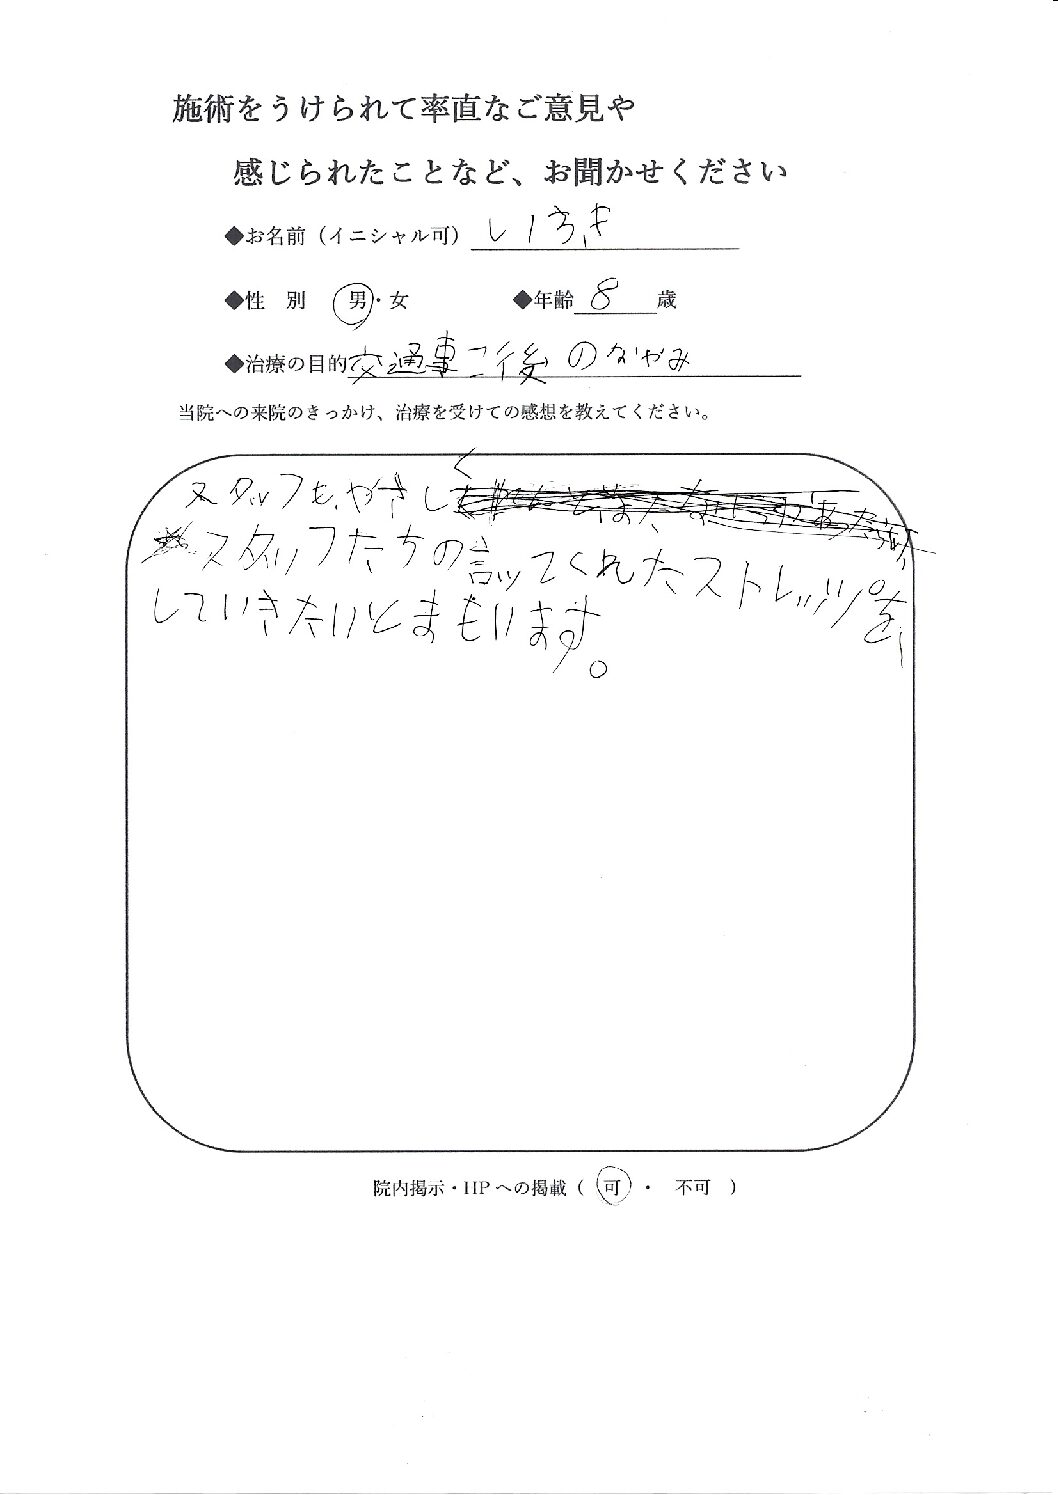 施術をうけられて率直なご意見や
感じられたことなど、お聞かせください
◆お名前（イニシャル可）
◆性 別 男・女 ◆年齢 8 歳
◆治療の目的 交通事こ後のなやみ
当院への来院のきっかけ、治療を受けての感想を教えてください。
スタッフも、やさしく
スタッフたちの言ってくれたストレッツを、
していきたいとまもいます。
院内掲示・HPへの掲載（ 可 ・ 不可 ）